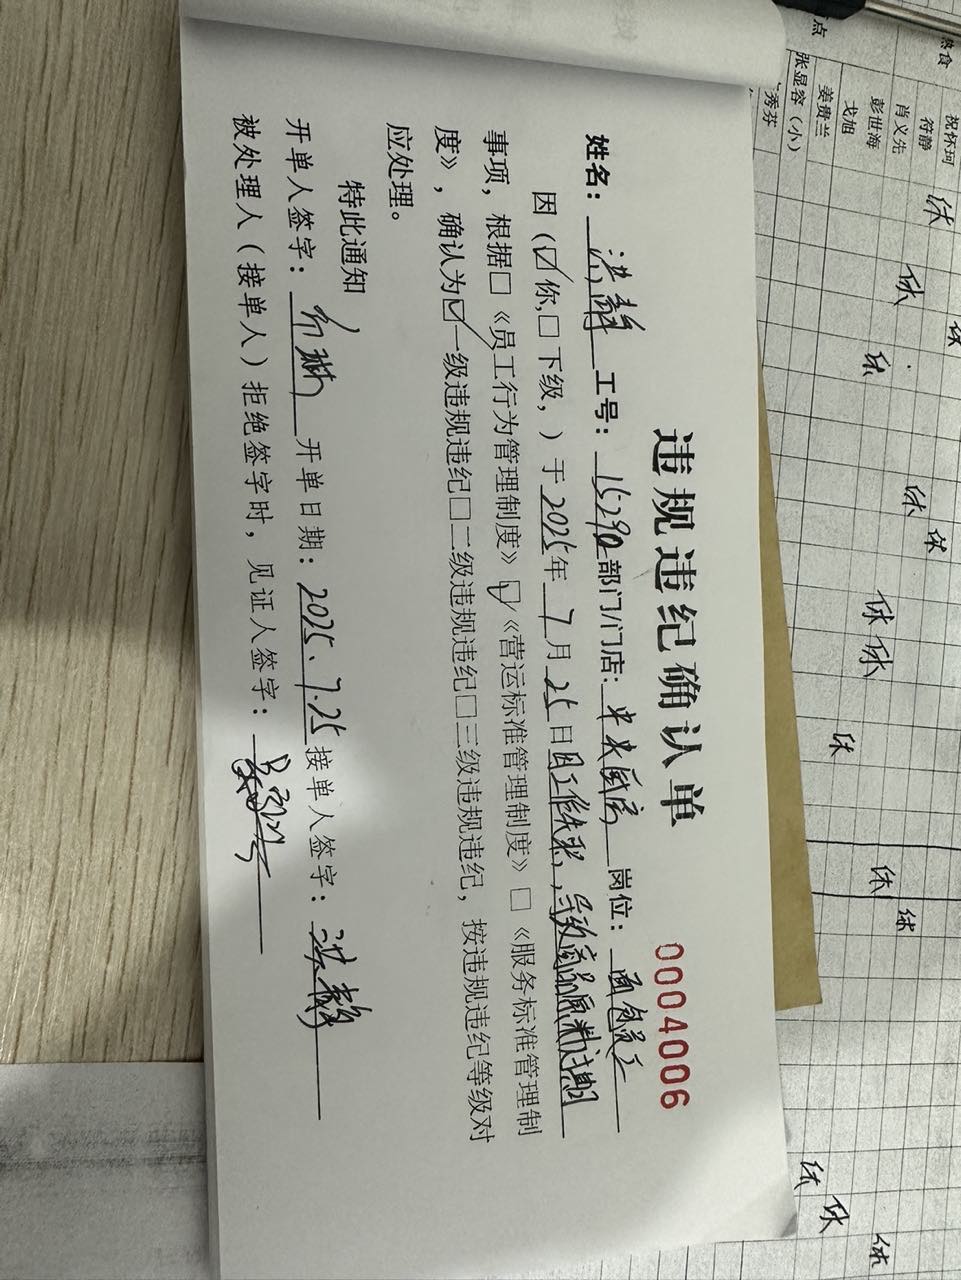 违规违纪确认单
0004006
姓名：洪静 工号：15290 部门/门店：中央厨房 岗位：面包员工
因（☑你，□下级，）于2025年7月25日因工作失职，导致商品原料过期
事项，根据□《员工行为管理制度》☑《营运标准管理制度》□《服务标准管理制
度》，确认为☑一级违规违纪□二级违规违纪□三级违规违纪，按违规违纪等级对
应处理。
特此通知
开单人签字： 开单日期：2025.7.25 接单人签字：洪静
被处理人（接单人）拒绝签字时，见证人签字：
熟食
祝怀珂
符静
肖义先
彭世海
戈旭
姜贵兰
张显容（小）
秀芬
点
休
休
休
休
休
休
休
休
休
休
休
休
休
休